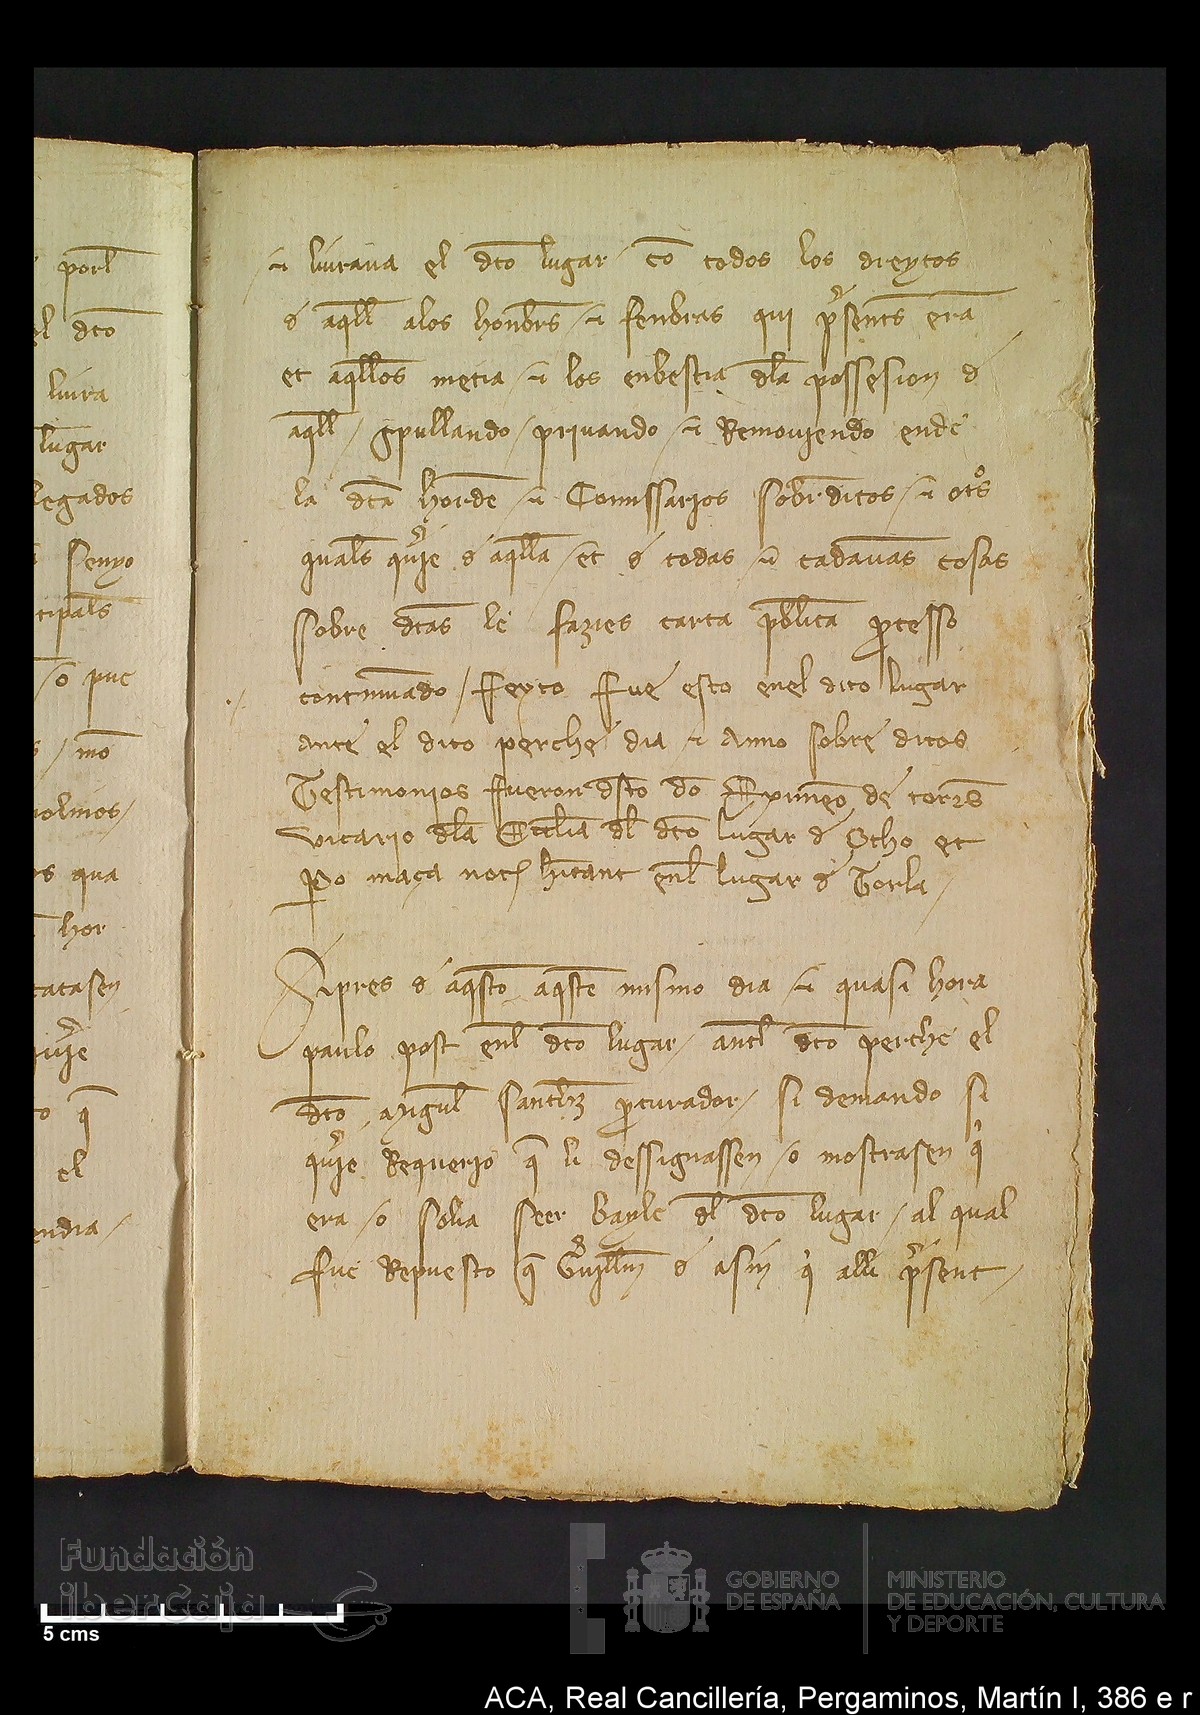 porl
el dto
liura
lugar
legados
senyo
cipals
/o pue
s / mo
molinos /
os qua
hor
catasen
quie
to q
el
endia /
⁊ liuraua el dto lugar co todos los dreytos
d aqll alos honbrs / ⁊ fenbras qui psents era
et aqllos metia / ⁊ los enbestia dla possesion d
aqll / gpullando / priuando / ⁊ Remouiendo ende
la dta horde / ⁊ Comissarios sobrditos / ⁊ otrs
quals quie d aqlla / et d todas ⁊ cadauas cosas
sobre dtas le fazies carta pblica pcesso
continuado / ffeyto ffue esto enel dito lugar
ante el dito perche dia ⁊ Anno sobre ditos
Testimonios ffueron dsto do Eximeno de torrs
vicario dla Ecclia dl dto lugar d Otho et
Po maça not hitant enl lugar d Torla /
Apres d aqsto aqste mismo dia / ⁊ quasi hora
paulo post enl dto lugar / antl dto perche el
dto Ayngul Sanchz pcurador / si demando si
quie Requerio q li dessignassen / o mostrasen q
era / o solia seer bayle dl dto lugar / al qual
fue Repuesto q Guillm d asin q alli psent /
Fundación
ibercaja
5 cms
GOBIERNO
DE ESPAÑA
MINISTERIO
DE EDUCACIÓN, CULTURA
Y DEPORTE
ACA, Real Cancillería, Pergaminos, Martín I, 386 e r